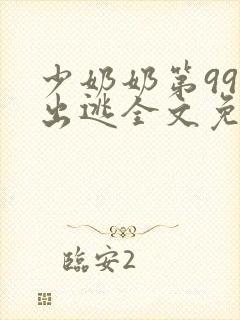 少奶奶第99
出逃全文免
臨安2